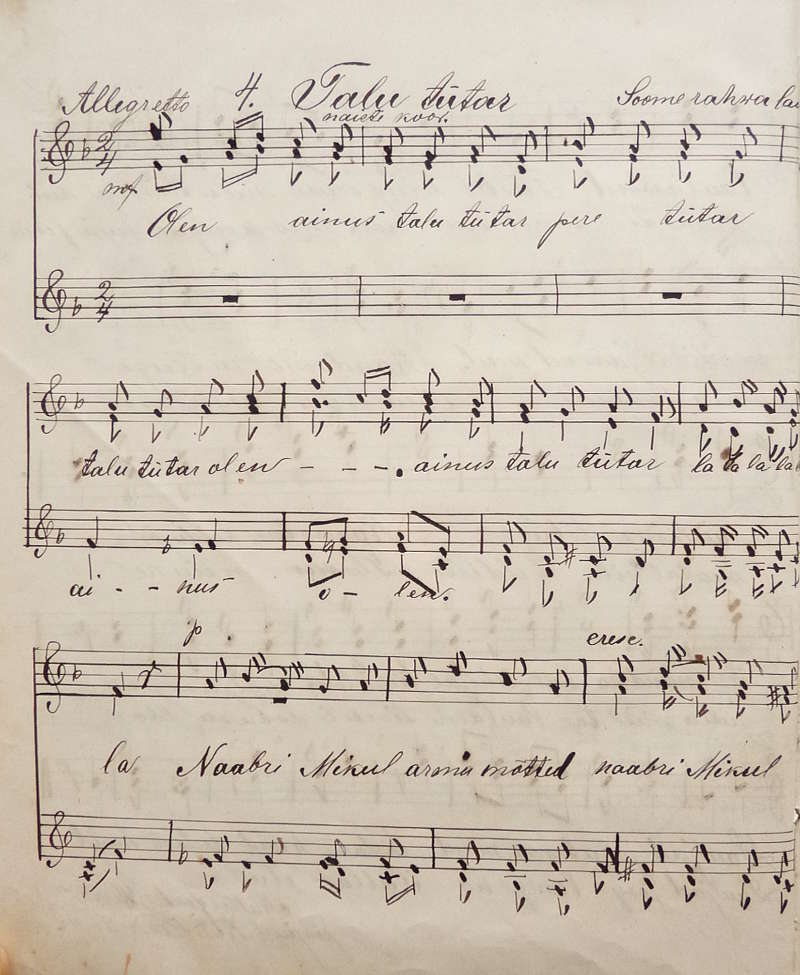 Allegretto 4. Talu tütar Soome rahwa lau
naeste koor.
mf
Olen ainus talu tütar pere tütar
talu tütar olen - - -. ainus talu tütar la la la la
ai - - nus o - len.
p cresc.
la Naabri Mikul armu mõtted naabri Mikul